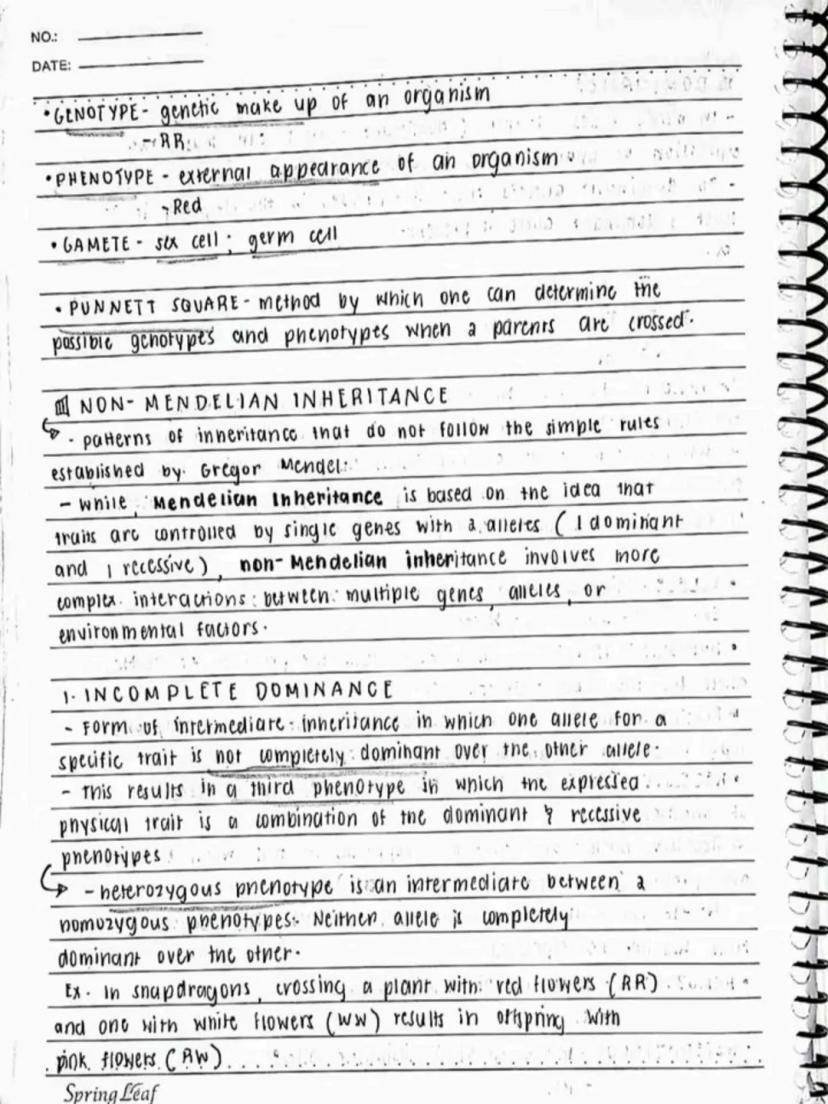 NO.:
DATE:
• GENOTYPE - genetic make up of an organism
- RR
• PHENOTYPE - external appearance of an organism
- Red
• GAMETE - sex cell ; germ cell
• PUNNETT SQUARE - method by which one can determine the
possible genotypes and phenotypes when 2 parents are crossed.
NON- MENDELIAN INHERITANCE
- patterns of inheritance that do not follow the simple rules
established by Gregor Mendel.
- while, Mendelian Inheritance is based on the idea that
traits are controlled by single genes with 2 alleles ( 1 dominant
and 1 recessive ), non-Mendelian inheritance involves more
complex interactions between multiple genes, alleles, or
environmental factors.
1. INCOMPLETE DOMINANCE
- Form of intermediate inheritance in which one allele for a
specific trait is not completely dominant over the other allele.
- This results in a third phenotype in which the expressed
physical trait is a combination of the dominant & recessive
phenotypes
- heterozygous phenotype is an intermediate between 2
homozygous phenotypes. Neither allele is completely
dominant over the other.
Ex. In snapdragons, crossing a plant with red flowers (RR)
and one with white flowers (WW) results in offspring with
pink flowers (RW)
Spring Leaf